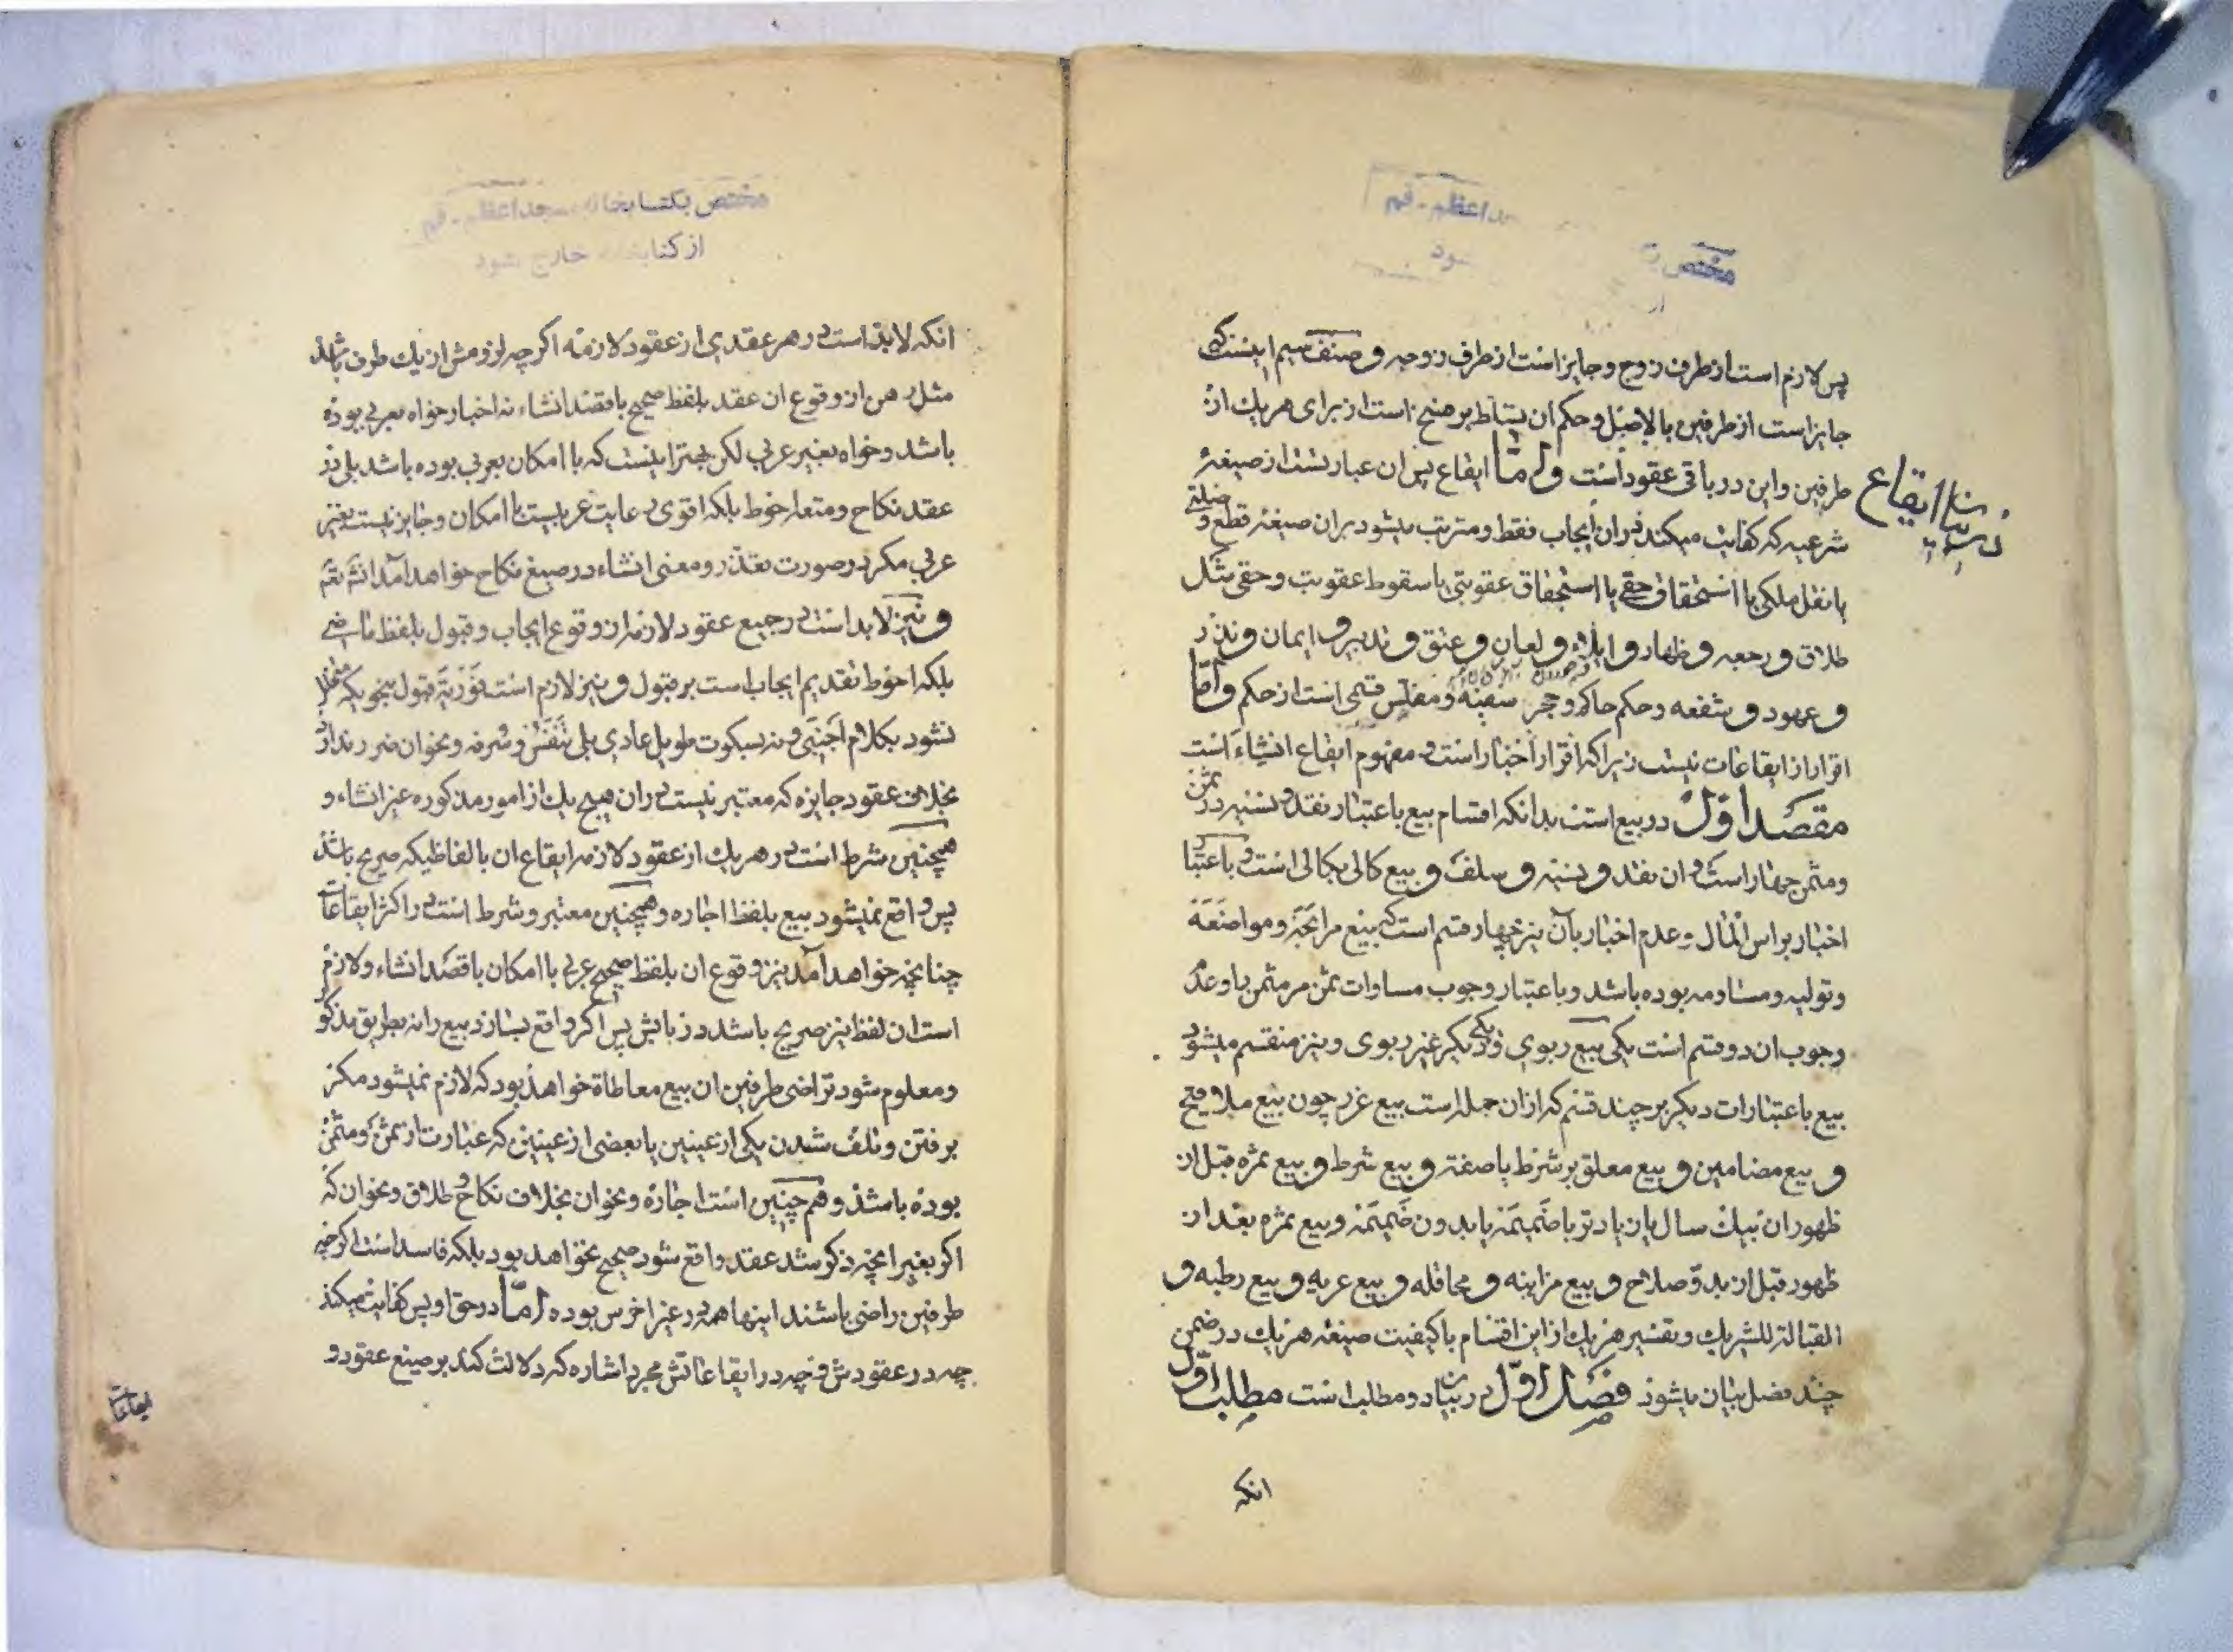 مختص
مسجد اعظم - قم
پس لازم است از طرف زوج و جایز است از طرف زوجه و صنف سیم اینست که
جایز است از طرفین بالاصل و حکم ان تسلط بر فسخ است از برای هر یك از
طرفین و این در باقی عقود است و اما ایقاع پس ان عبارتست از صیغهٔ
در بیان ایقاع
شرعیه که کفایت میکند در ان ایجاب فقط و مترتب میشود بران صیغه قطع وصلتی
یا نقل ملکی یا استحقاق حقی یا استحقاق عقوبتی یا سقوط عقوبت و حقی مثل
طلاق و رجعه و ظهار و ایلاء و لعان و عتق و تدبیر و ایمان و نذر
و عهود و شفعه و حکم حاکم و حجر سفیه و مفلس قسمی است از حکم و اما
اقرار از ایقاعات نیست زیرا که اقرار اخبار است و مفهوم ایقاع انشاء است
مقصد اول در بیع است بدانکه اقسام بیع باعتبار نقد و نسیه در ثمن
و مثمن چهار است و ان نقد و نسیه و سلف و بیع کالی بکالی است و باعتبار
اخبار براس المال و عدم اخبار بآن نیز چهار قسم است که بیع مرابحه و مواضعه
و تولیه و مساومه بوده باشد و باعتبار وجوب مساوات ثمن مر مثمن را و عدم
وجوب ان دو قسم است یکی بیع ربوی و یکی دیگر غیر ربوی و نیز منقسم میشود
بیع باعتبارات دیگر بر چند قسم که ازان جمله است بیع غرر چون بیع ملاقیح
و بیع مضامین و بیع معلق بر شرط یا صفت و بیع شرط و بیع ثمره قبل از
ظهور ان بیك سال یا زیادتر با ضمیمه یا بدون ضمیمه و بیع ثمره بعد از
ظهور قبل از بدو صلاح و بیع مزابنه و محاقله و بیع عریه و بیع رطبه و
القبالة للشریك و تفسیر هر یك از این اقسام با کیفیت صیغه هر یك در ضمن
چند فصل بیان میشود فصل اول در بیان دو مطلب است مطلب اول
انکه
مختص بکتابخانه مسجد اعظم - قم
از کتابخانه خارج نشود
انکه لابد است در هر عقدی از عقود لازمه اکرچه لزومش از یك طرف باشد
مثل رهن از وقوع ان عقد بلفظ صحیح با قصد انشاء نه اخبار خواه بعربی بوده
باشد و خواه بغیر عربی لکن بهتر اینست که با امکان بعربی بوده باشد بلی در
عقد نکاح و متعه احوط بلکه اقوی رعایت عربیست با امکان و جایز نیست بغیر
عربی مکر در صورت تعذر و معنی انشاء در صیغ نکاح خواهد آمد انشاءالله تعم
و نیز لابد است در جمیع عقود لازمه از وقوع ایجاب و قبول بلفظ ماضی
بلکه احوط تقدیم ایجاب است بر قبول و نیز لازم است فوریة قبول بنحویکه
نشود بکلام اجنبی و نه بسکوت طویل عادی بلی تنفس و سرفه و نحو ان ضرر ندارد
بخلاف عقود جایزه که معتبر نیست در ان هیچ یك از امور مذکوره غیر انشاء و
همچنین شرط است در هر یك از عقود لازمه ایقاع ان بالفاظیکه صریح باشد
پس واقع نمیشود بیع بلفظ اجاره و همچنین معتبر و شرط است در اکثر ایقاعات
چنانچه خواهد آمد نیز وقوع ان بلفظ صحیح عربی با امکان با قصد انشاء و لازم
است ان لفظ نیز صریح باشد در زبانش پس اکر واقع سازد بیع را نه بطریق مذکور
و معلوم شود تراضی طرفین ان بیع معاطاة خواهد بود که لازم نمیشود مکر
برفتن و تلف شدن یکی از عینین یا بعضی از عینین که عبارت از ثمن و مثمن
بوده باشد و هم چنین است اجاره و نحو ان بخلاف نکاح و طلاق و نحو ان که
اکر بغیر انچه ذکر شد عقد واقع شود صحیح نخواهد بود بلکه فاسد است اکرچه
طرفین راضی باشند اینها همه در غیر اخرس بوده اما در حق او پس کفایت میکند
چه در عقودش و چه در ایقاعاتش مجرد اشاره که دلالت کند بر صیغ عقود و
ایقاعات